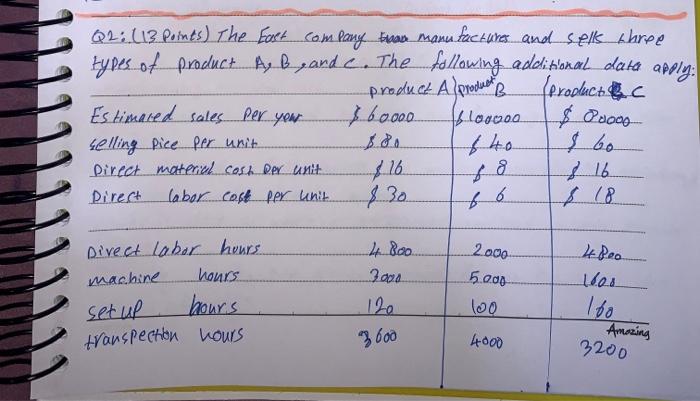 Q2: (13 Points) The East company manufactures and sells three
types of product A, B, and C. The following additional data apply:
product A product B product C
Estimated sales Per year $60000 $100000 $80000
selling Pice Per unit $80 $40 $60
Direct material cost Per unit $16 $8 $16
Direct labor cost per unit $30 $6 $18
Direct labor hours 4800 2000 4800
machine hours 3000 5000 1600
set up hours 120 100 160
transpection hours 3600 4000 3200
Amazing